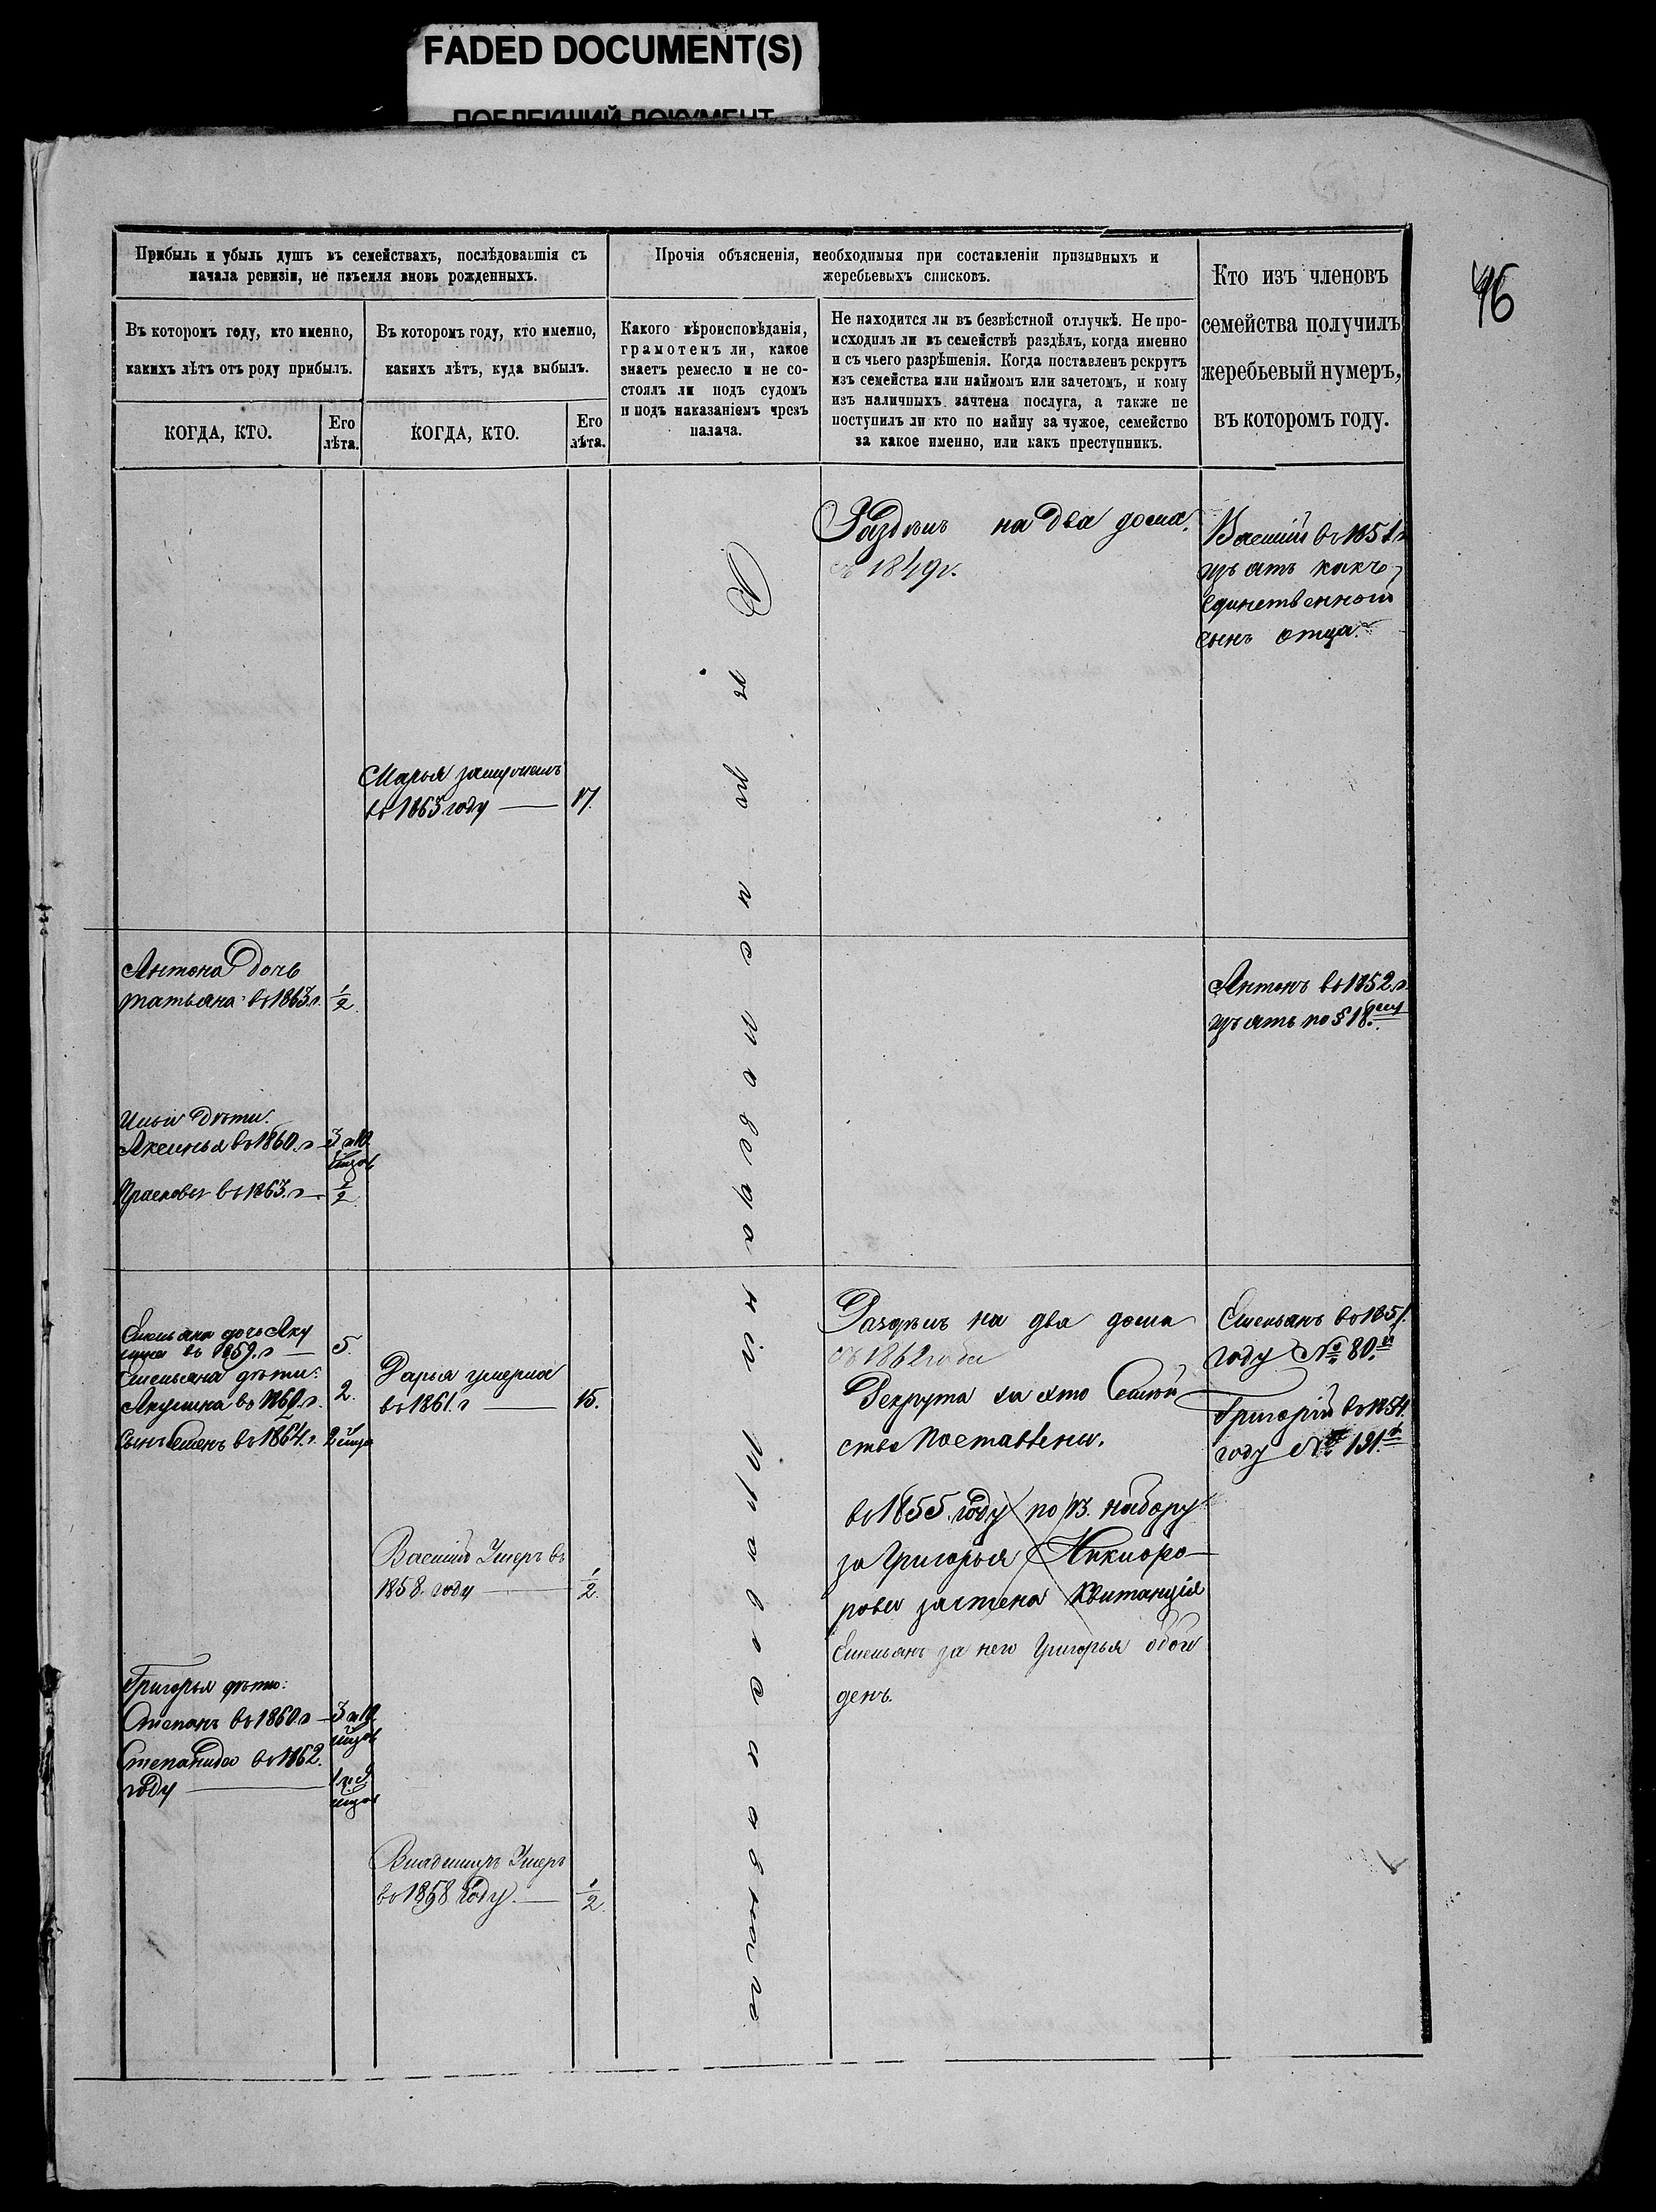 FADED DOCUMENT(S)
ПОБЛЕКШИЙ ДОКУМЕНТ
46
Прибыль и убыль душъ въ семействахъ, послѣдовавшія съ
начала ревизіи, не изъемля вновь рожденныхъ.
Прочія объясненія, необходимыя при составленіи призывныхъ и
жеребьевыхъ списковъ.
Кто изъ членовъ
семейства получилъ
жеребьевый нумеръ,
въ которомъ году.
Въ которомъ году, кто именно,
какихъ лѣтъ отъ роду прибылъ.
Въ которомъ году, кто именно,
какихъ лѣтъ, куда выбылъ.
Какого вѣроисповѣданія,
грамотенъ ли, какое
знаетъ ремесло и не со-
стоялъ ли подъ судомъ
и подъ наказаніемъ чрезъ
палача.
Не находится ли въ безвѣстной отлучкѣ. Не про-
исходилъ ли въ семействѣ раздѣлъ, когда именно
и съ чьего разрѣшенія. Когда поставленъ рекрутъ
изъ семейства или наймомъ или зачетомъ, и кому
изъ наличныхъ зачтена послуга, а также не
поступилъ ли кто по найму за чужое, семейство
за какое именно, или какъ преступникъ.
КОГДА, КТО.
Его
лѣта.
КОГДА, КТО.
Его
лѣта.
Раздѣлъ на два дома
съ 1849 г.
Василій въ 1851 г
изъятъ какъ
единственной
сынъ отца.
Марья замужемъ
въ 1863 году 17.
Антона дочь
Татьяна въ 1863 г. 1/2
Антонъ въ 1852 г.
изъятъ по § 18.
Ильи дѣти.
Аксинья въ 1860. г 3 и 10
Прасковья въ 1863. г 1/2
вѣроисповѣданія Православнаго
Емельяна дочь Аку
лина въ 1859. г 5.
Емельяна дѣти:
Акулина въ 1860. г. 2.
Сынъ Семенъ въ 1864. г. 2
Дарья умерла
въ 1861. г 15.
Раздѣлъ на два дома
съ 1862 года
Рекрута за это Семей
ство поставлены.
въ 1855. году по 13. набору
за Григорья Никифо-
рова зачтена Квитанція
Емельянъ за него Григорья обой
денъ.
Емельянъ въ 1851.
году № 80.
Григорій въ 1854.
году № 131.
Василій Умеръ въ
1858. году 1/2.
Григорья дѣти:
Степанъ въ 1860. г 3 и 10
Степанида въ 1862.
году
Владимиръ Умеръ
въ 1858 Году. 1/2.